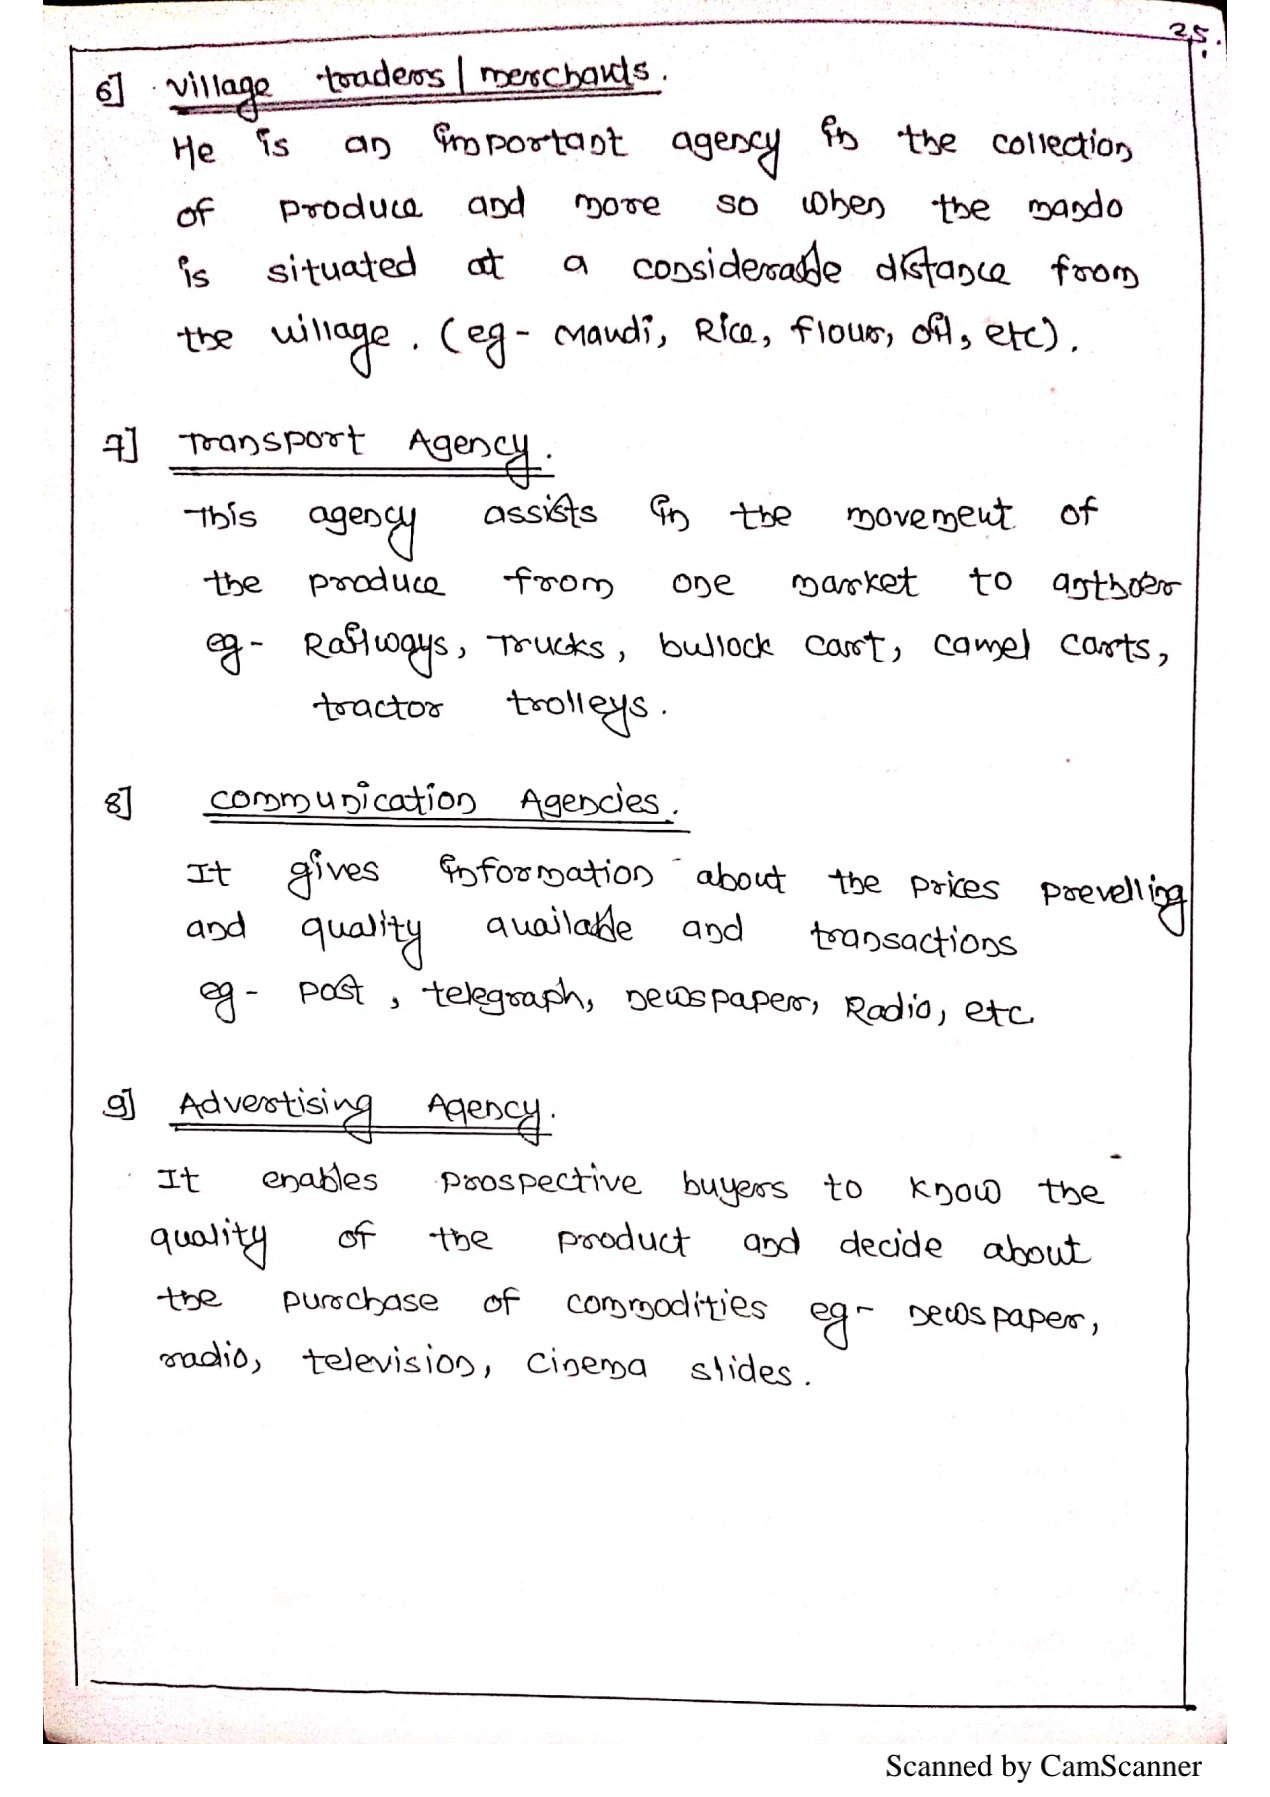 25.
6] village traders/merchants.
He is an important agency in the collection
of produce and more so when the mando
is situated at a considerable distance from
the village. (eg- Maudi, Rice, flour, oil, etc).
7] Transport Agency.
This agency assists in the movement of
the produce from one market to
eg- Railways, Trucks, bullock cart, camel carts,
tractor trolleys.
8] Communication Agencies.
It gives information about the prices prevelling
and quality available and transactions
eg- Post, telegraph, newspaper, Radio, etc.
9] Advertising Agency.
It enables prospective buyers to know the
quality of the product and decide about
the purchase of commodities eg- newspaper,
radio, television, cinema slides.
Scanned by CamScanner